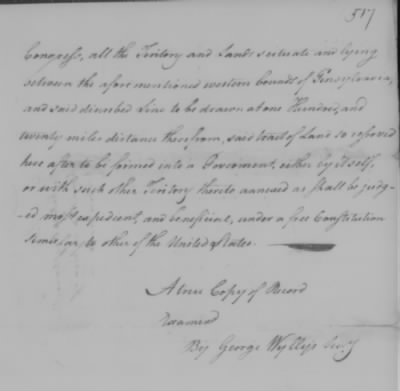 517
Congress, all the Teritory and Lands scituate and lying
between the afore mentioned western bounds of Pensylvania,
and said discribed Line to be drawn at one Hundred, and
twenty miles distance therefrom, said tract of Land so reserved
here after to be formed into a Goverment, either by itself,
or with such other Teritory thereto annexed as shall be judg-
-ed most expedient, and beneficial, under a free Constitution
simeelar to other of the United States.
A true Copy of Record
Examind
By George Wyllys Secy